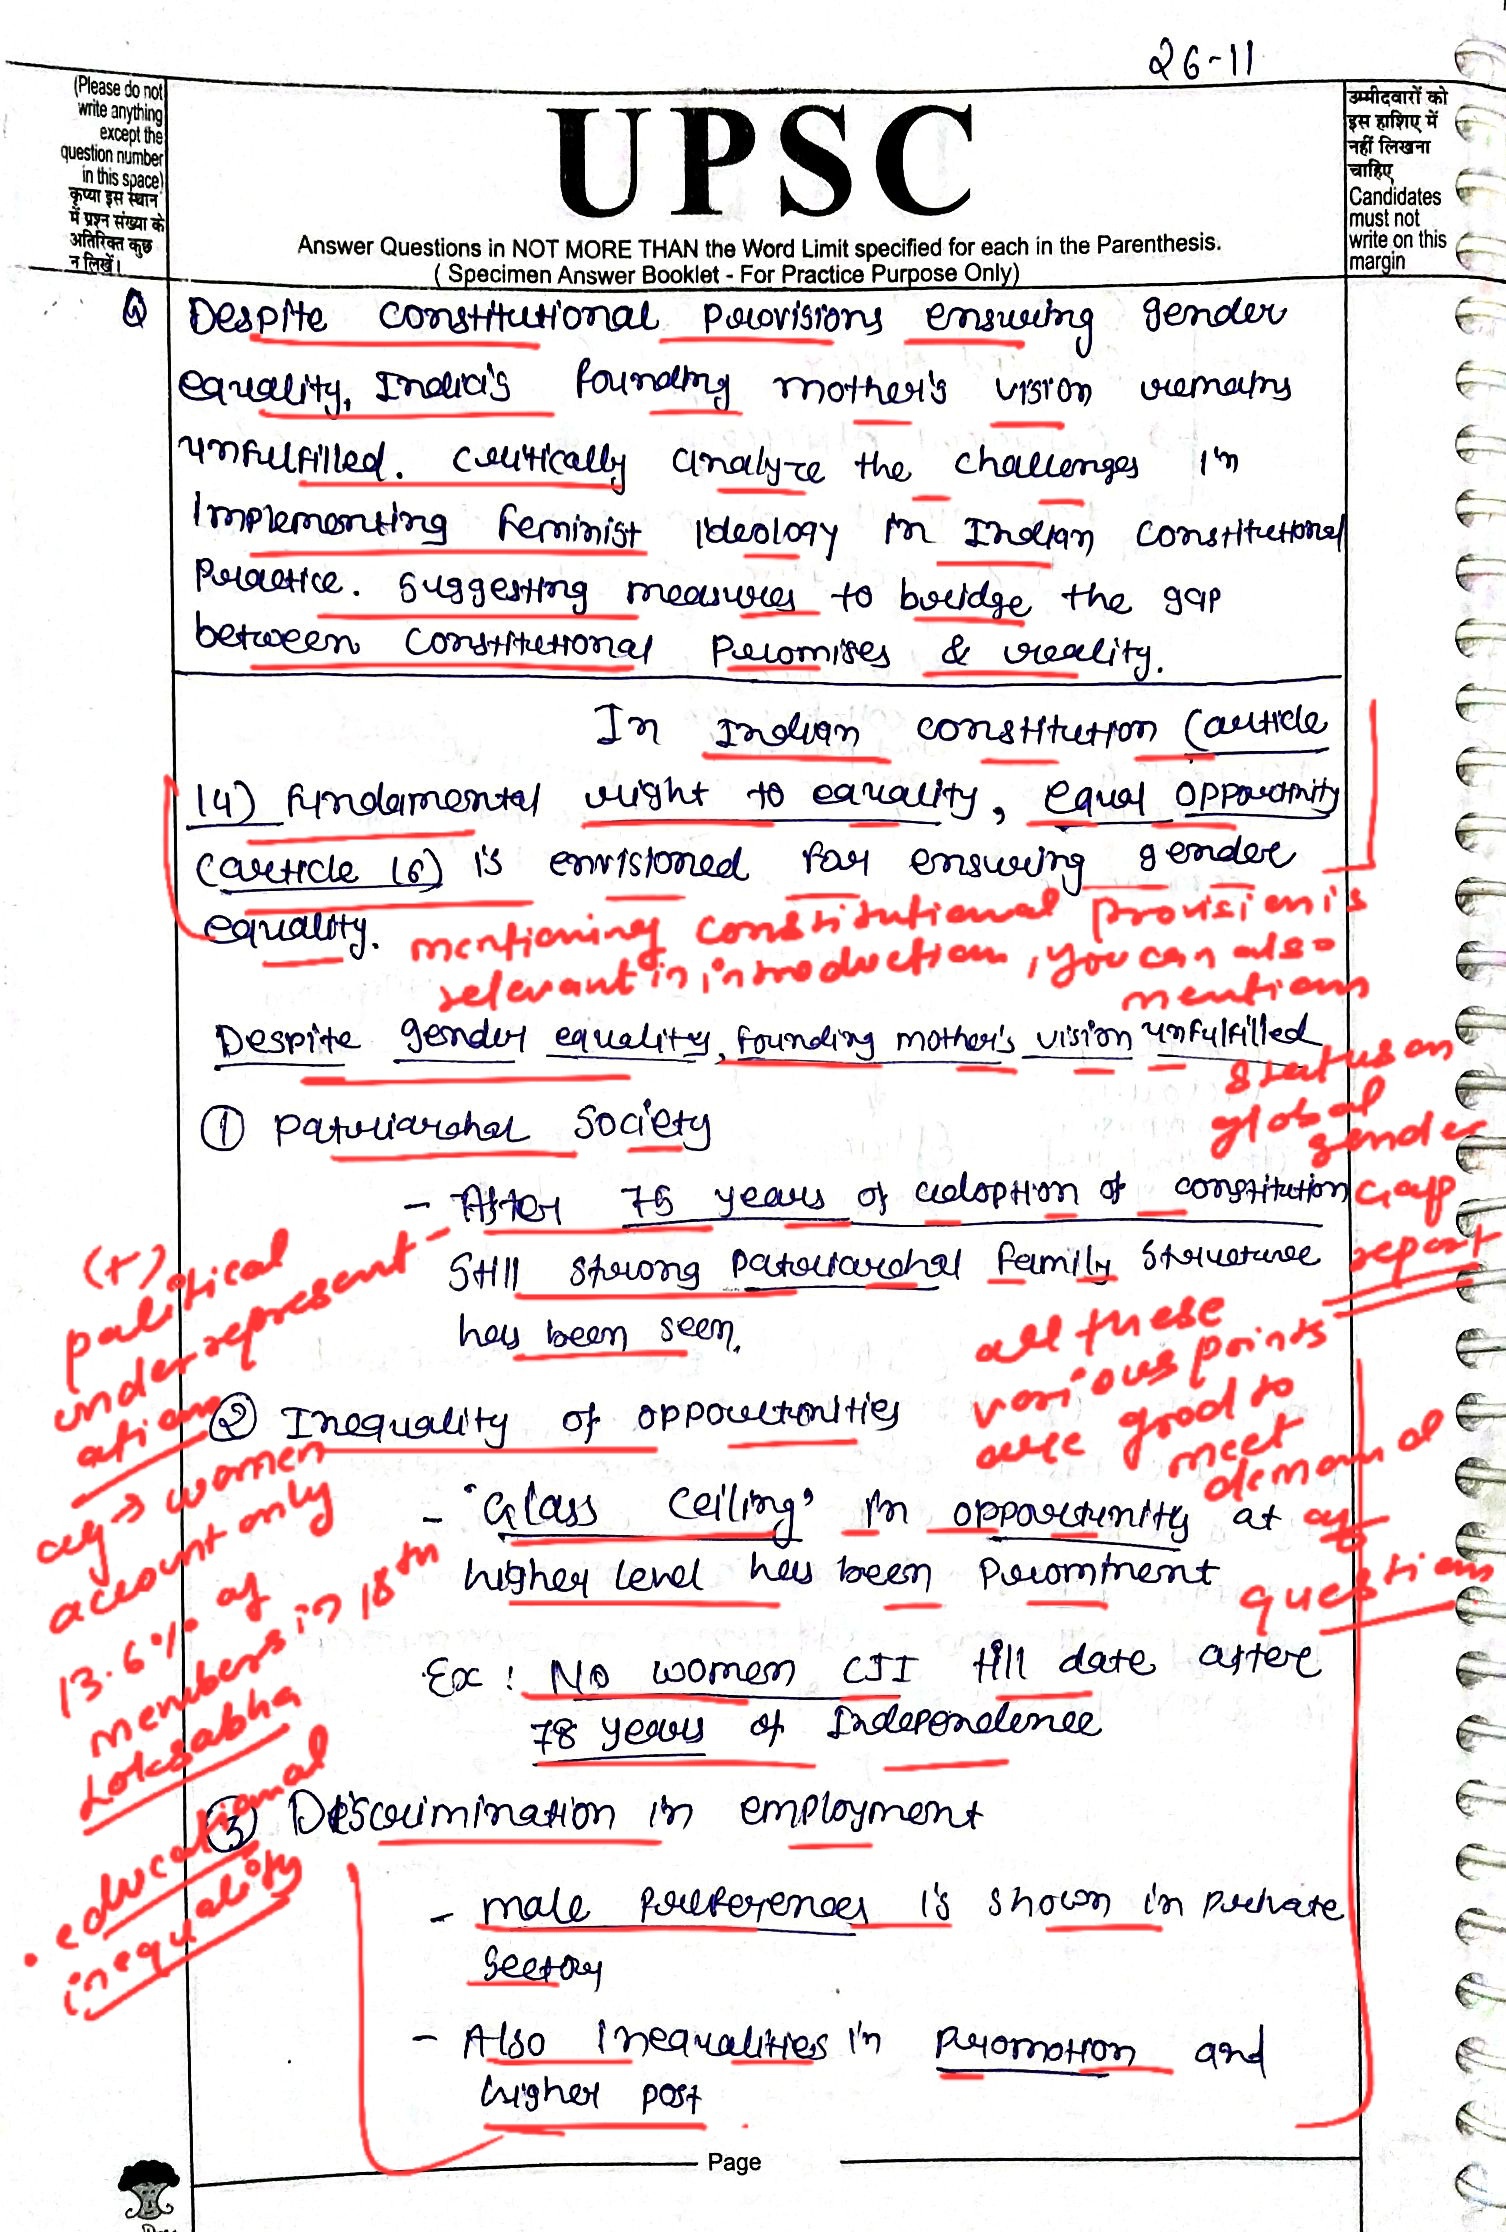 26-11
(Please do not
write anything
except the
question number
in this space)
कृप्या इस स्थान
में प्रश्न संख्या के
अतिरिक्त कुछ
न लिखें।
UPSC
Answer Questions in NOT MORE THAN the Word Limit specified for each in the Parenthesis.
( Specimen Answer Booklet - For Practice Purpose Only)
उम्मीदवारों को
इस हाशिए में
नहीं लिखना
चाहिए
Candidates
must not
write on this
margin
Q Despite constitutional provisions ensuring gender
equality, India's founding mother's vision remains
unfulfilled. Critically analyze the challenges in
implementing feminist ideology in Indian constitutional
practice. Suggesting measures to bridge the gap
between constitutional promises & reality.
In Indian constitution (article
14) fundamental right to equality, equal opportunity
(article 16) is envisioned for ensuring gender
equality.
mentioning constitutional provision is
relevant in introduction, you can also
mention
status on
global
gender
Gap
report
Despite gender equality, founding mother's vision unfulfilled
① Patriarchal society
- After 75 years of adoption of constitution
still strong patriarchal family structure
has been seen.
(+)
political
underrepresent-
ation
eg → women
account only
13.6% of
members in 18th
Loksabha
• educational
inequality
all these
various points
are good to
meet
demand
of
question
② Inequality of opportunities
- 'Glass ceiling' in opportunity at
higher level has been prominent
Ex: No women CJI till date after
78 years of Independence
③ Discrimination in employment
- male preferences is shown in private
sector
- Also inequalities in promotion and
higher post
Page